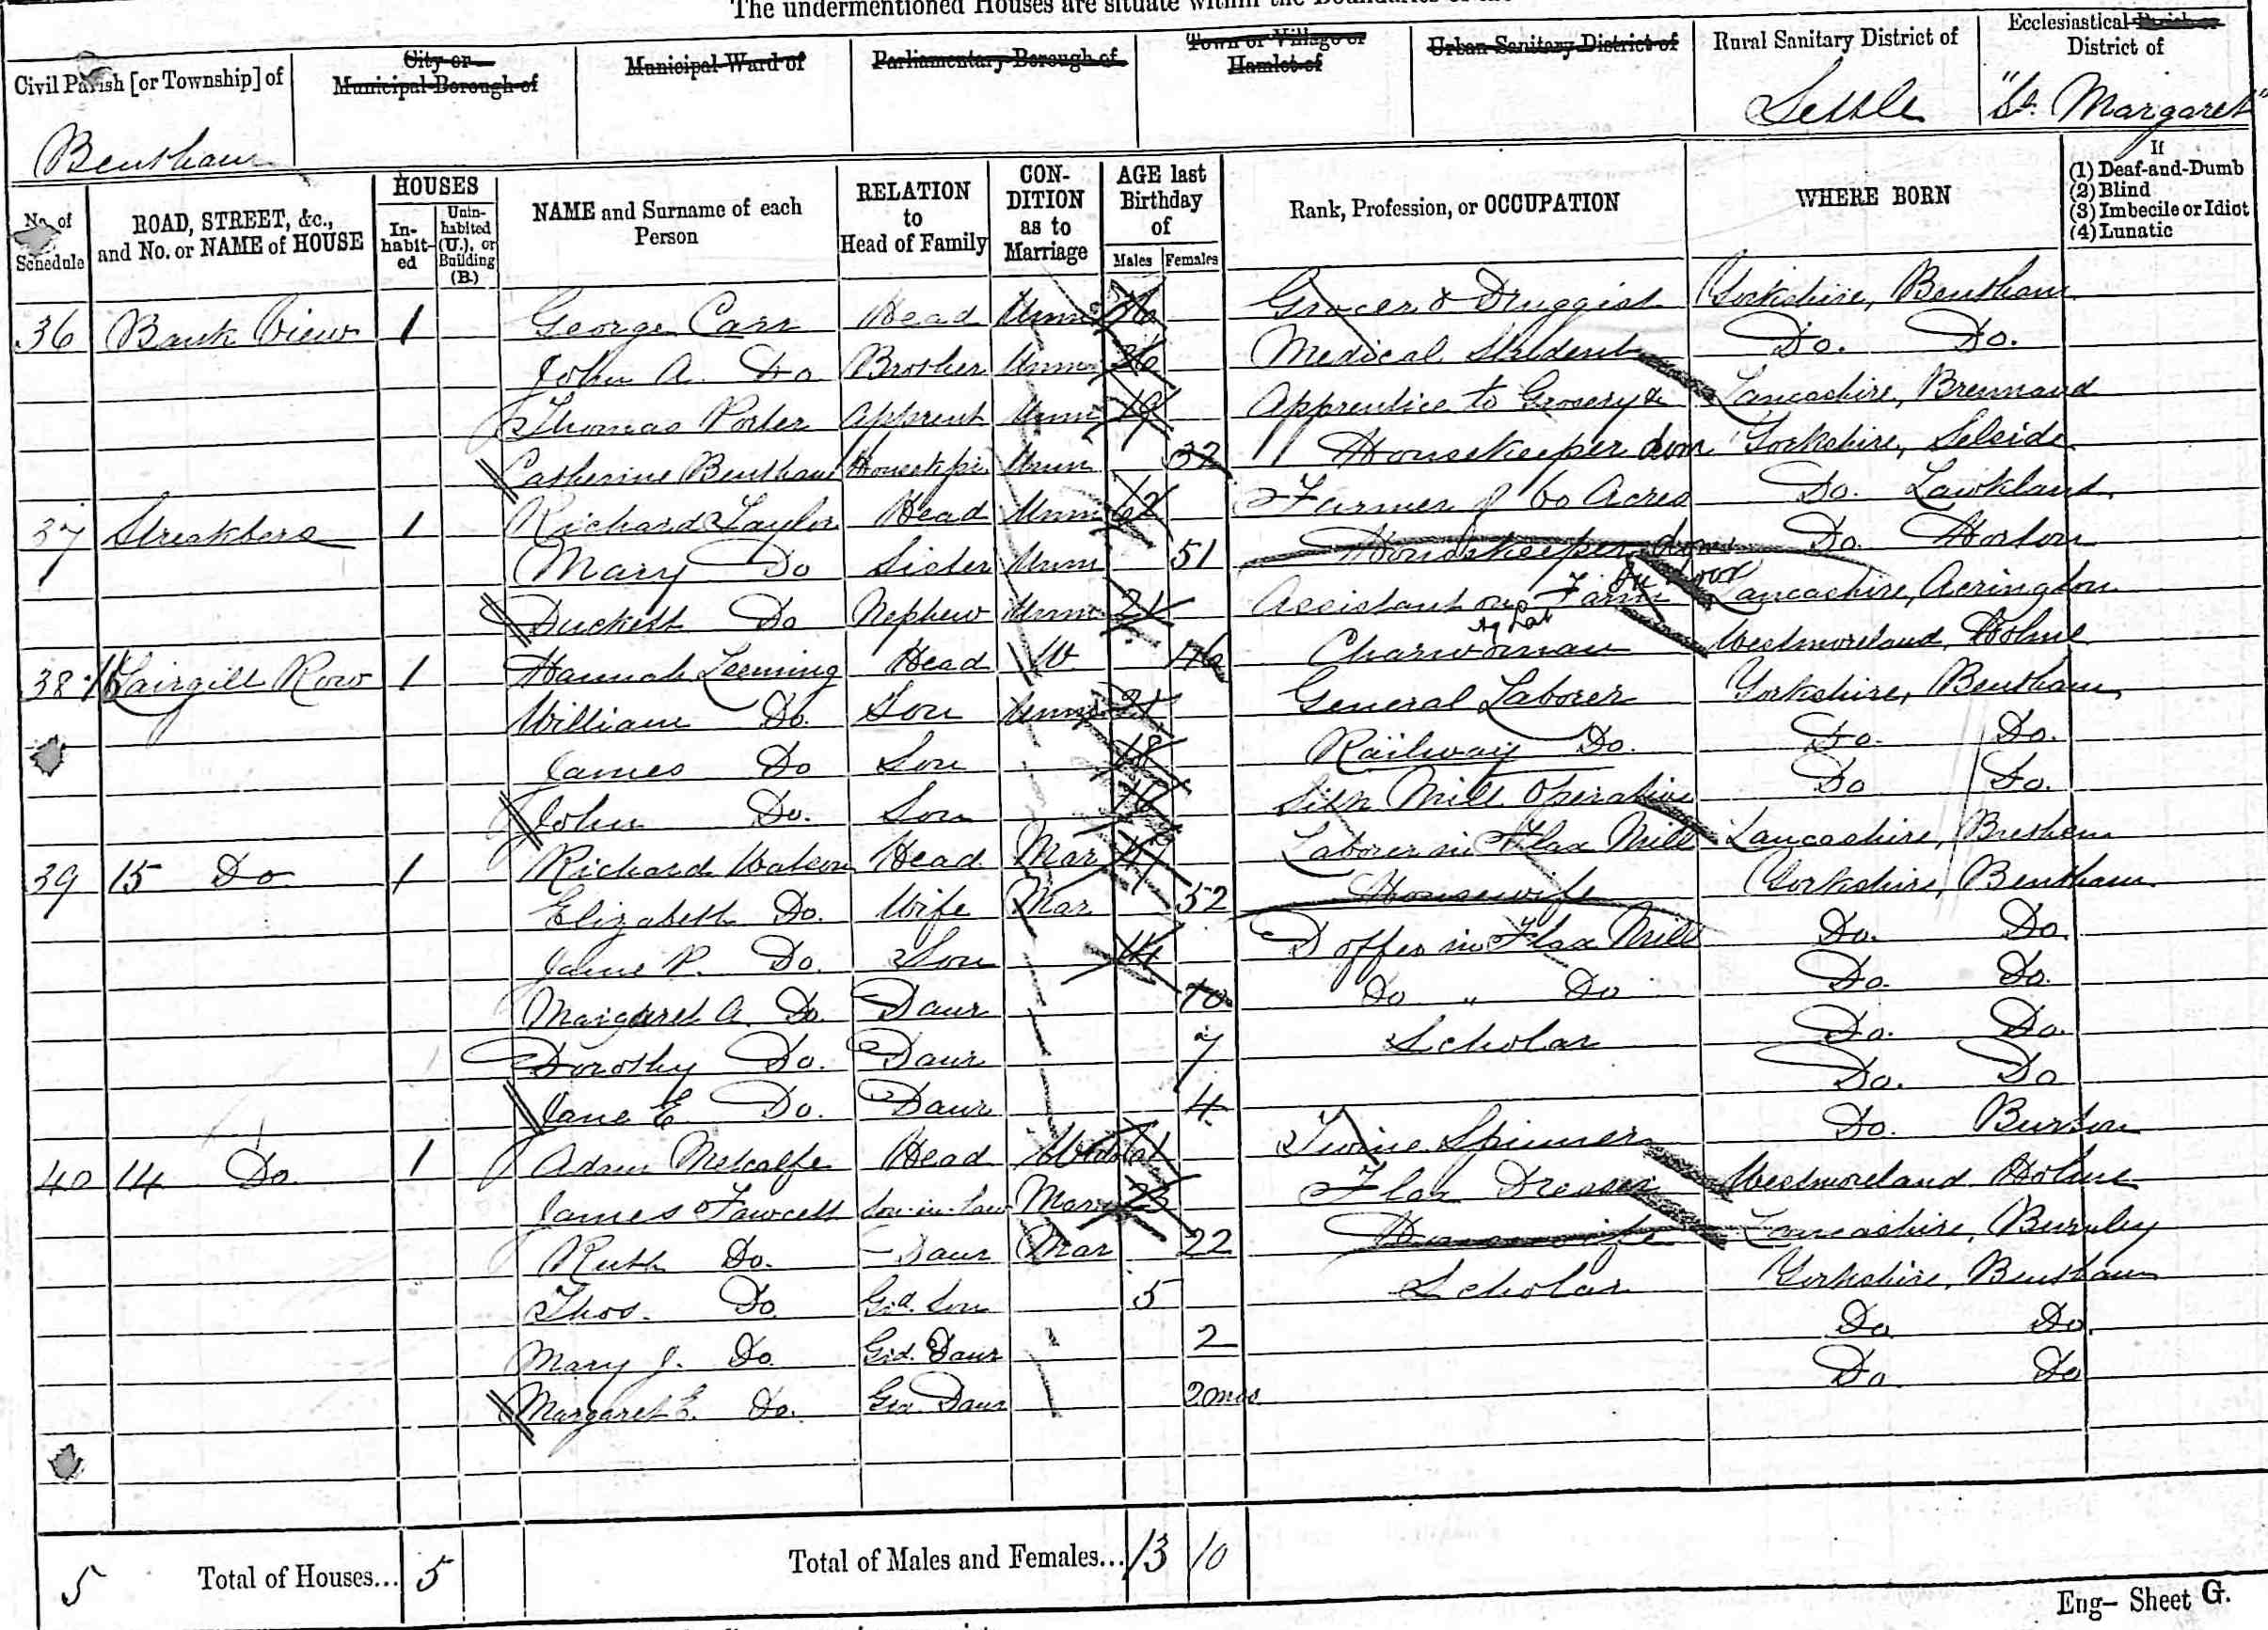 The undermentioned Houses are situate within the Boundaries of the
Civil Parish [or Township] of
City or Municipal Borough of
Municipal Ward of
Parliamentary Borough of
Town or Village or Hamlet of
Urban Sanitary District of
Rural Sanitary District of
Ecclesiastical Parish or District of
Bentham
Settle
"St. Margaret"
No. of Schedule
ROAD, STREET, &c., and No. or NAME of HOUSE
HOUSES
Inhabited
Uninhabited (U.), or Building (B.)
NAME and Surname of each Person
RELATION to Head of Family
CONDITION as to Marriage
AGE last Birthday of
Males Females
Rank, Profession, or OCCUPATION
WHERE BORN
If
(1) Deaf-and-Dumb
(2) Blind
(3) Imbecile or Idiot
(4) Lunatic
36 Bank View 1 George Carr Head Unm Grocer & Druggist Yorkshire, Bentham
John A. Do Brother Unm 26 Medical Student Do. Do.
Thomas Porter Apprent Unm 19 Apprentice to Grocery & Lancashire, Brennand
Catherine Bentham Housekpr Unm 32 Housekeeper dom Yorkshire, Selside
37 1 Richard Taylor Head Unm 62 Farmer of 60 Acres Do. Lawkland
Mary Do Sister Unm 51 Housekeeper dom Do. Horton
Duckett Do Nephew Unm 21 Assistant on Farm Lancashire, Acrington
Ag Lab
38 Lairgill Row 1 Hannah Leeming Head W Charwoman Westmoreland, Holme
William Do. Son Unm 21 General Laborer Yorkshire, Bentham
James Do Son 18 Railway Do. Do. Do.
John Do. Son Silk Mill Operative Do Do.
39 15 Do 1 Richard Watson Head Mar Laborer in Flax Mill Lancashire,
Elizabeth Do. Wife Mar 52 Housewife Yorkshire, Bentham
P. Do. Son 14 Doffer in Flax Mill Do. Do.
Margaret A. Do. Daur 10 Do " Do Do. Do.
Dorothy Do. Daur 7 Scholar Do. Do.
Jane E. Do. Daur 4 Do. Do
40 14 Do. 1 Adam Metcalfe Head 61 Twine Spinner Do. Burton
James Fawcett Son-in-law Mar 23 Flax Dresser Westmoreland Holme
Ruth Do. Daur Mar 22 Housewife Lancashire, Burnley
Thos. Do Gd. Son 5 Scholar Yorkshire, Bentham
Mary J. Do. Gd. Daur 2 Do Do.
Margaret E. Do. Gd. Daur 2 mos Do Do
5 Total of Houses... 5 Total of Males and Females... 13 10
Eng- Sheet G.